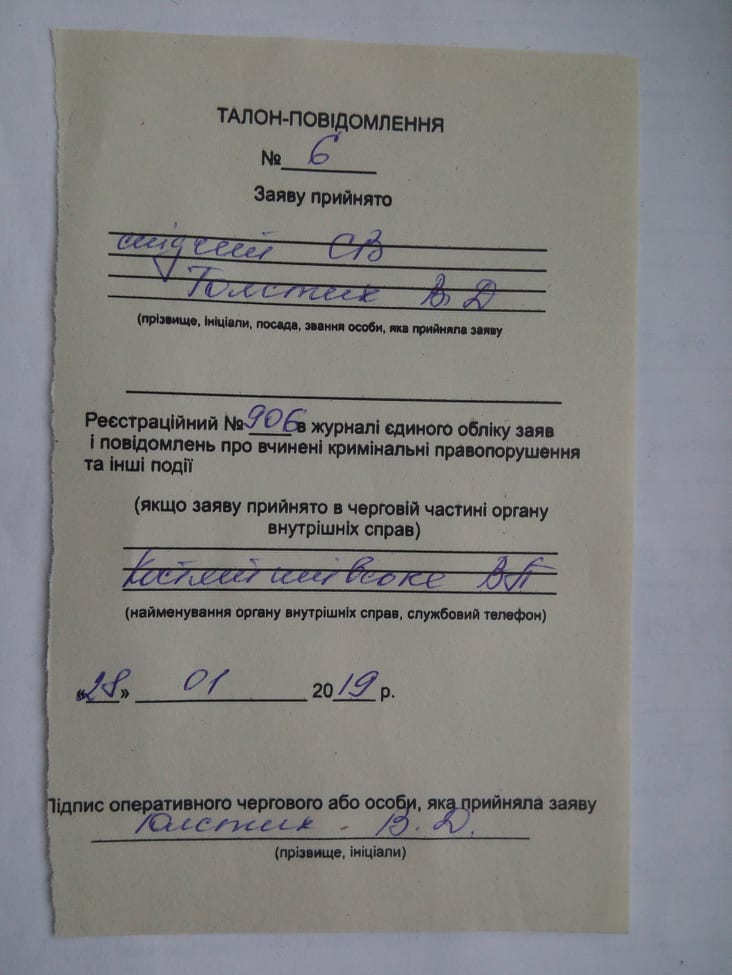 ТАЛОН-ПОВІДОМЛЕННЯ
№ 6
Заяву прийнято
слідчий СВ
Толстик В. Д
(прізвище, ініціали, посада, звання особи, яка прийняла заяву
Реєстраційний № 906 в журналі єдиного обліку заяв
і повідомлень про вчинені кримінальні правопорушення
та інші події
(якщо заяву прийнято в черговій частині органу
внутрішніх справ)
ВП
(найменування органу внутрішніх справ, службовий телефон)
«28» 01 2019 р.
Підпис оперативного чергового або особи, яка прийняла заяву
Толстик В. Д.
(прізвище, ініціали)